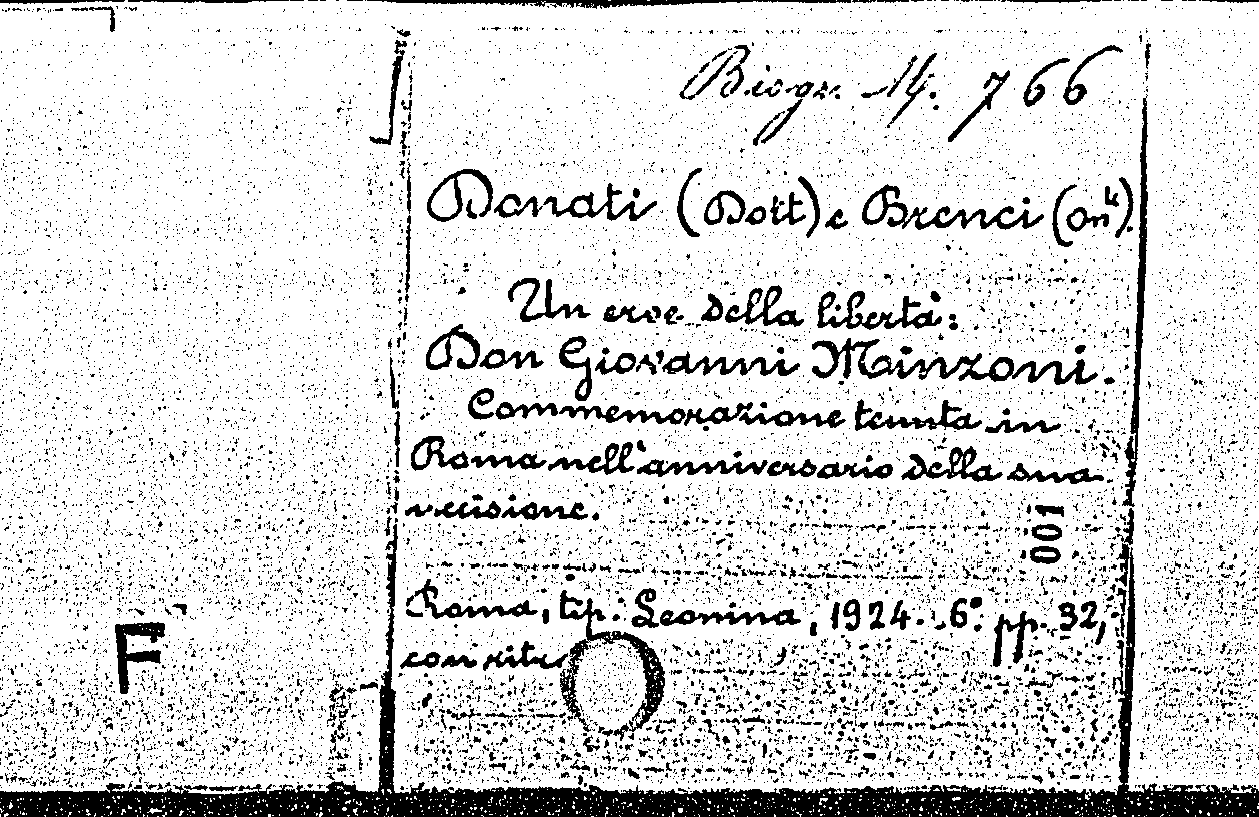 Biogr. 14. 766
Donati (Dott) e Brenci (On<sup>le</sup>).
Un eroe della libertà:
Don Giovanni Minzoni.
Commemorazione tenuta in
Roma nell'anniversario della sua
uccisione.
001
Roma, tip. Leonina, 1924. 6° pp. 32,
F
con